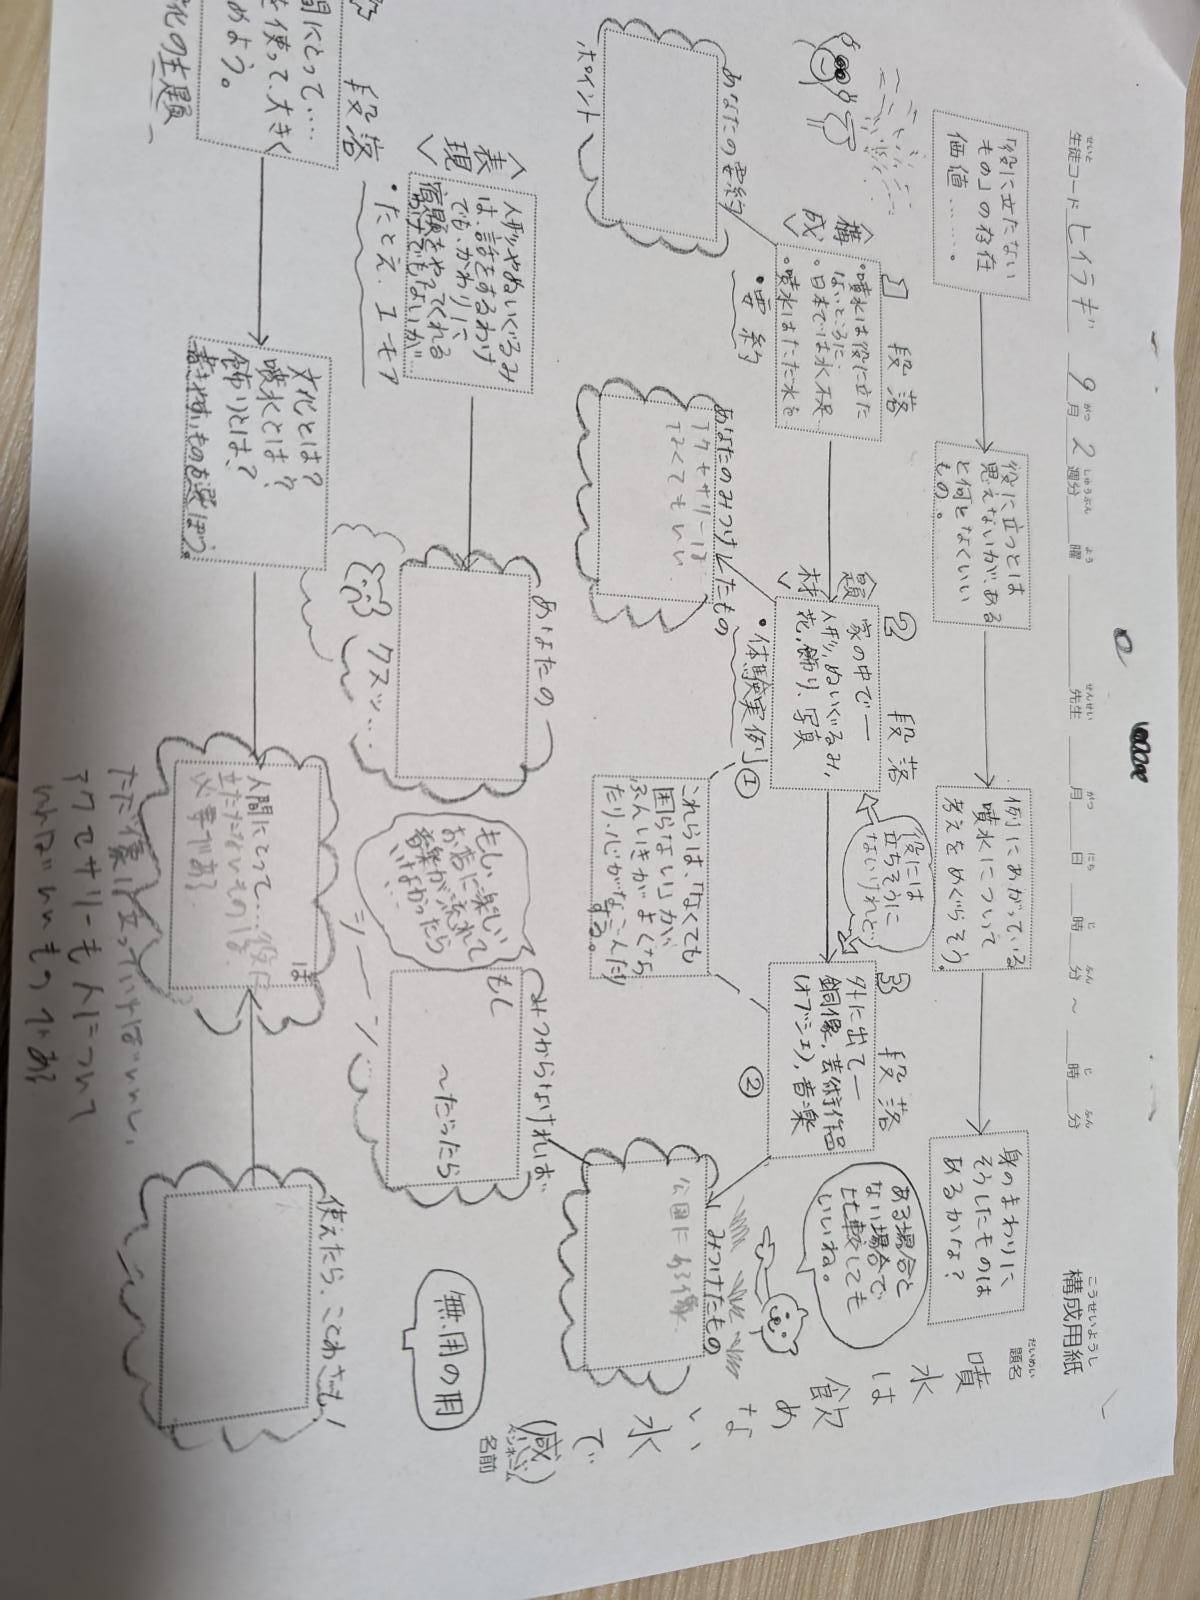 構成用紙
こうせいようし
生徒コード ヒイラギ 9月 2週分 曜 先生 月 日 時 分 ～ 時 分
せいと がつ しゅうぶん よう せんせい がつ にち じ ふん じ ふん
題名
だいめい
噴水は飲めない水で
(感)
ペンネーム
名前
「役に立たない
もの」の存在
価値……。
役に立つとは
思えないが、ある
と何となくいい
もの。
例にあがっている
噴水について
考えをめぐらそう。
身のまわりに、
そうしたものは
あるかな？
〈構成〉
1 段落
・噴水は役に立た
ないところに
・日本では水不足
・噴水はただ水を
・要約
あなたの要約
ポイント
〈題材〉
2 段落
家の中で―
人形、ぬいぐるみ、
花、飾り、写真
・体験実例①
あなたのみつけたもの
アクセサリーは
なくてもいい
役には
立ちそうに
ないけれど…
これらは、「なくても
困らない」が、
ふんいきがよくなっ
たり、心がなごんだり
する。
3 段落
外に出て―
銅像、芸術作品
(オブジェ)、音楽
②
ある場合と
ない場合で
比較しても
いいね。
みつけたもの
公園にある像
みつからなければ、
もし
～だったら
もし、
お店に楽しい
音楽が流れて
いなかったら
…
シーーン…
無用の用
〈表現〉
人形やぬいぐるみ
は、話をするわけ
でも、かわりに
宿題をやってくれる
わけでもないが
・たとえ、ユーモア
あなたの
クスッ…
段落
間にとって…
を使って、大きく
めよう。
化の主題
文化とは？
噴水とは？
飾りとは？
書きやすいものを選ぼう。
人間にとって…役に
立たないものは
必要である
は
使えたら、ことわざも！
ただ像は立っていればいいし、
アクセサリーも人について
いればいいものである